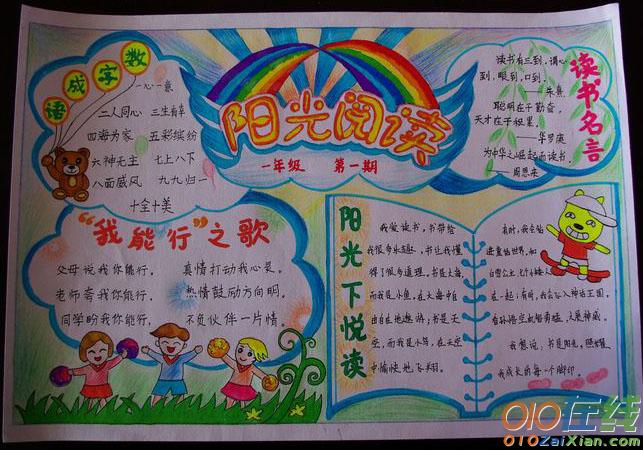 数字成语
一心一意
二人同心 三生有幸
四海为家 五彩缤纷
六神无主 七上八下
八面威风 九九归一
十全十美
阳光阅读
一年级 第一期
读书名言
读书有三到，谓心
到，眼到，口到。
——朱熹
聪明在于勤奋，
天才在于积累。
——华罗庚
为中华之崛起而读书。
——周恩来
“我能行”之歌
父母说我你能行， 真情打动我心裳。
老师夸我你能行， 热情鼓励方向明。
同学盼我你能行， 不负伙伴一片情。
阳光下悦读
我爱读书，书带给
我很多乐趣，书让我懂
得了很多道理。书是大海
而我是小鱼，在大海中自
由自在地遨游；书是天
空，而我是小鸟，在天空
中愉快地飞翔。
有时，我会钻
进童话世界，和
白雪公主、七个小矮人
在一起；有时，我会飞入神话王国，
和孙悟空
我想说，书是阳光，照耀
我成长的每一个脚印。
010在线
010ZaiXian.com